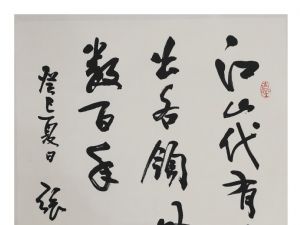 江山代有
出各領
数百年
癸巳夏日 張